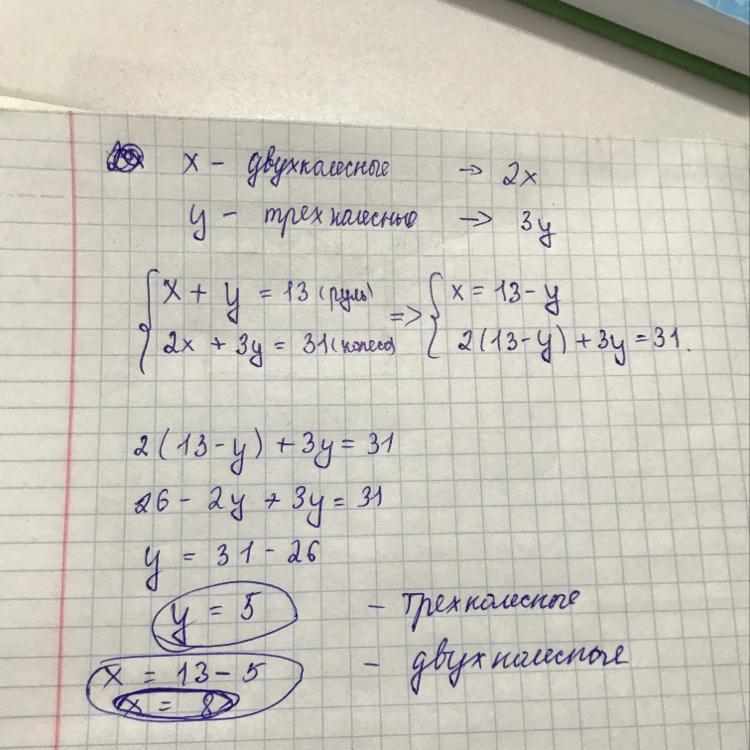 x - двухколесные -> 2x
y - трехколесные -> 3y
{ x + y = 13 (руль) => { x = 13 - y
{ 2x + 3y = 31 (колесо) { 2(13-y) + 3y = 31.
2(13-y) + 3y = 31
26 - 2y + 3y = 31
y = 31 - 26
y = 5 - трехколесные
x = 13 - 5 - двухколесные
x = 8